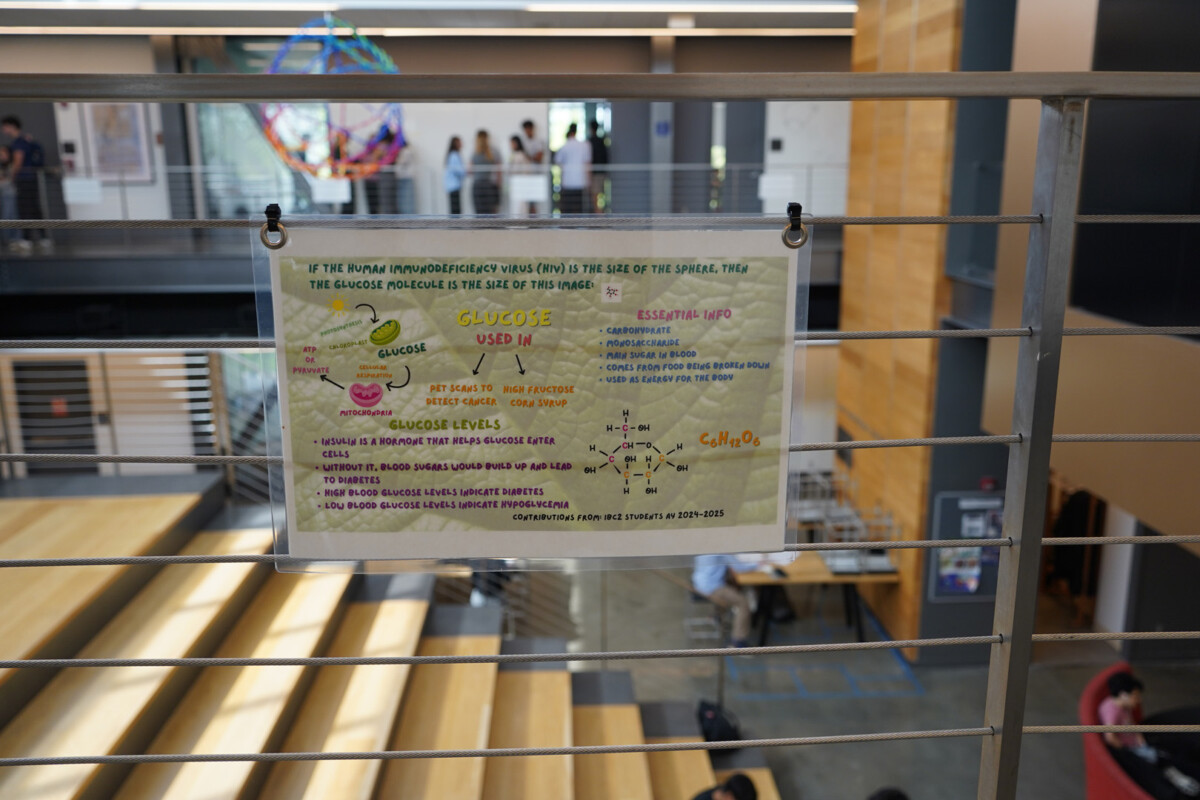 IF THE HUMAN IMMUNODEFICIENCY VIRUS (HIV) IS THE SIZE OF THE SPHERE, THEN
THE GLUCOSE MOLECULE IS THE SIZE OF THIS IMAGE:
PHOTOSYNTHESIS
CHLOROPLAST
GLUCOSE
ATP
OR
PYRUVATE
CELLULAR
RESPIRATION
MITOCHONDRIA
GLUCOSE
USED IN
PET SCANS TO
DETECT CANCER
HIGH FRUCTOSE
CORN SYRUP
ESSENTIAL INFO
• CARBOHYDRATE
• MONOSACCHARIDE
• MAIN SUGAR IN BLOOD
• COMES FROM FOOD BEING BROKEN DOWN
• USED AS ENERGY FOR THE BODY
GLUCOSE LEVELS
• INSULIN IS A HORMONE THAT HELPS GLUCOSE ENTER
CELLS
• WITHOUT IT, BLOOD SUGARS WOULD BUILD UP AND LEAD
TO DIABETES
• HIGH BLOOD GLUCOSE LEVELS INDICATE DIABETES
• LOW BLOOD GLUCOSE LEVELS INDICATE HYPOGLYCEMIA
H
H C OH
H CH O H
C OH H C
OH C C OH
H OH
C6H12O6
CONTRIBUTIONS FROM: IBC2 STUDENTS AY 2024-2025